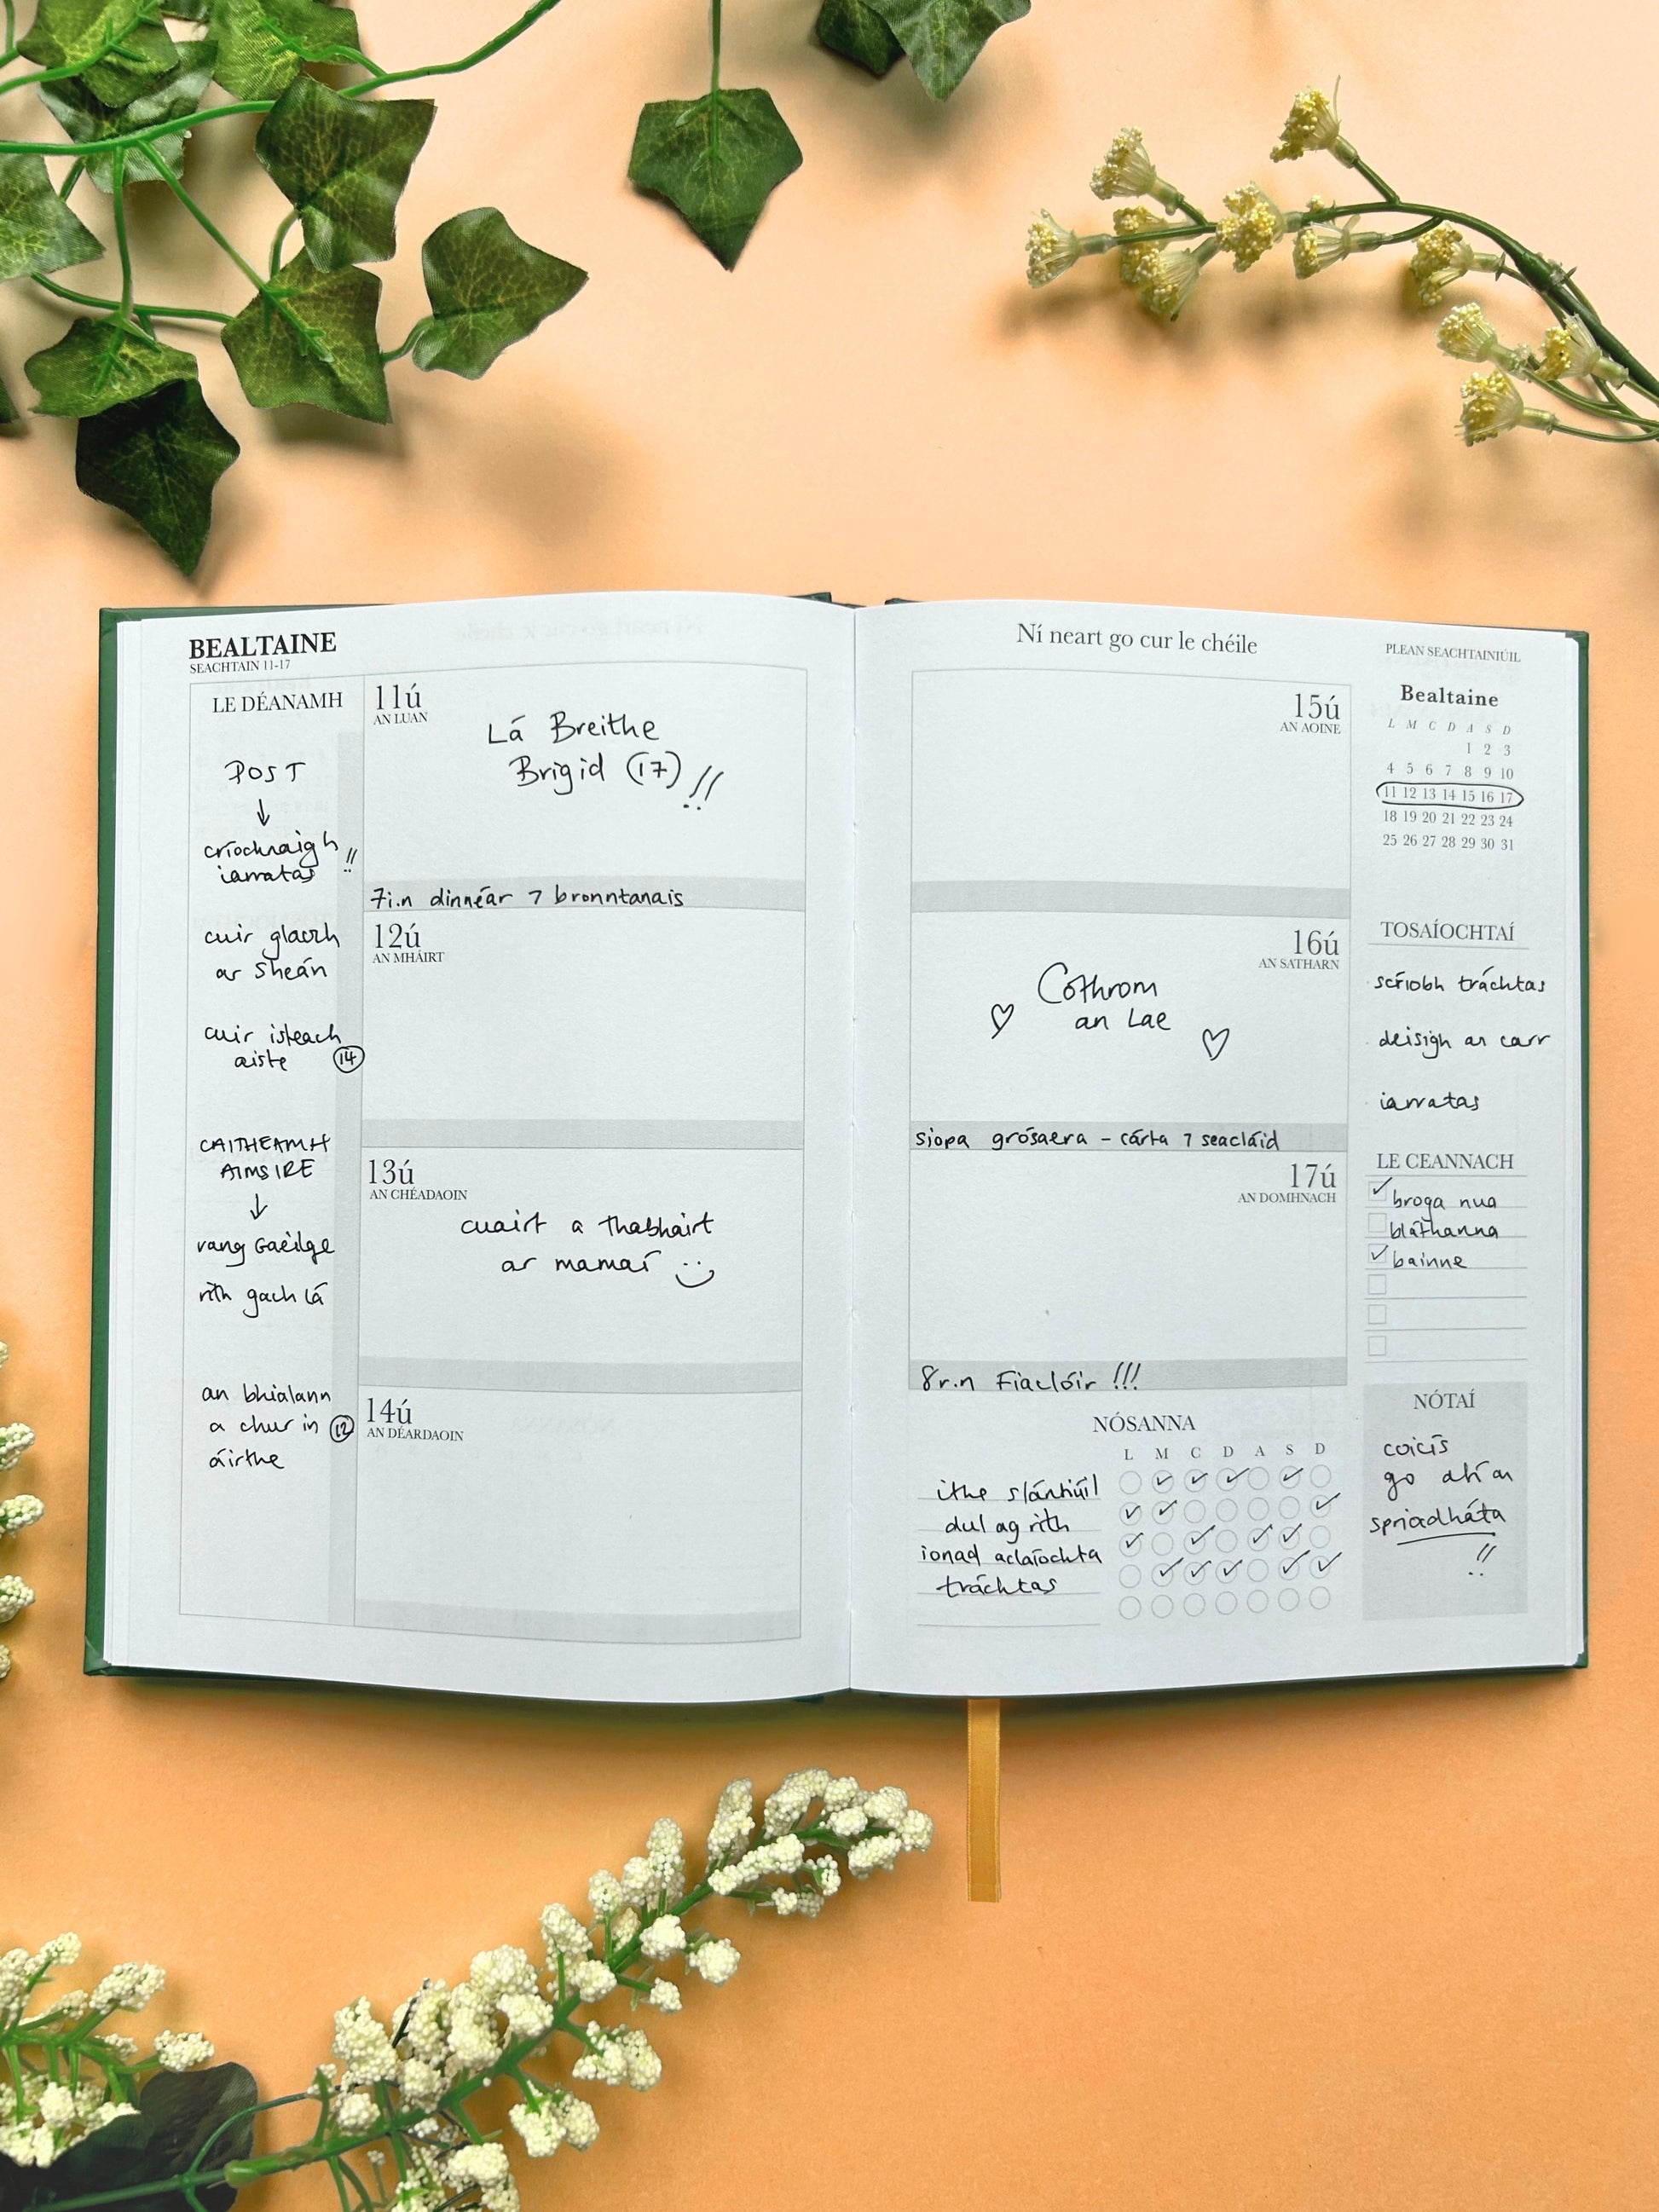 BEALTAINE
SEACHTAIN 11-17
LE DÉANAMH
POST
↓
críochnaigh
iarratas !!
cuir glaoch
ar Sheán
cuir isteach
aiste (14)
CAITHEAMH
AIMSIRE
↓
rang Gaeilge
rith gach lá
an bhialann
a chur in (12)
áirithe
11ú
AN LUAN
Lá Breithe
Brigid (17) !!
7i.n dinnéar 7 bronntanais
12ú
AN MHÁIRT
13ú
AN CHÉADAOIN
cuairt a thabhairt
ar mamaí
14ú
AN DÉARDAOIN
Ní neart go cur le chéile
15ú
AN AOINE
16ú
AN SATHARN
Cothrom
an Lae
siopa grósaera - cárta 7 seacláid
17ú
AN DOMHNACH
8r.n Fiaclóir !!!
NÓSANNA
L M C D A S D
ithe sláintiúil
dul ag rith
ionad aclaíochta
tráchtas
PLEAN SEACHTAINIÚIL
Bealtaine
L M C D A S D
1 2 3
4 5 6 7 8 9 10
11 12 13 14 15 16 17
18 19 20 21 22 23 24
25 26 27 28 29 30 31
TOSAÍOCHTAÍ
scríobh tráchtas
deisigh an carr
iarratas
LE CEANNACH
broga nua
bláthanna
bainne
NÓTAÍ
coicís
go dtí an
spriocdháta
!!